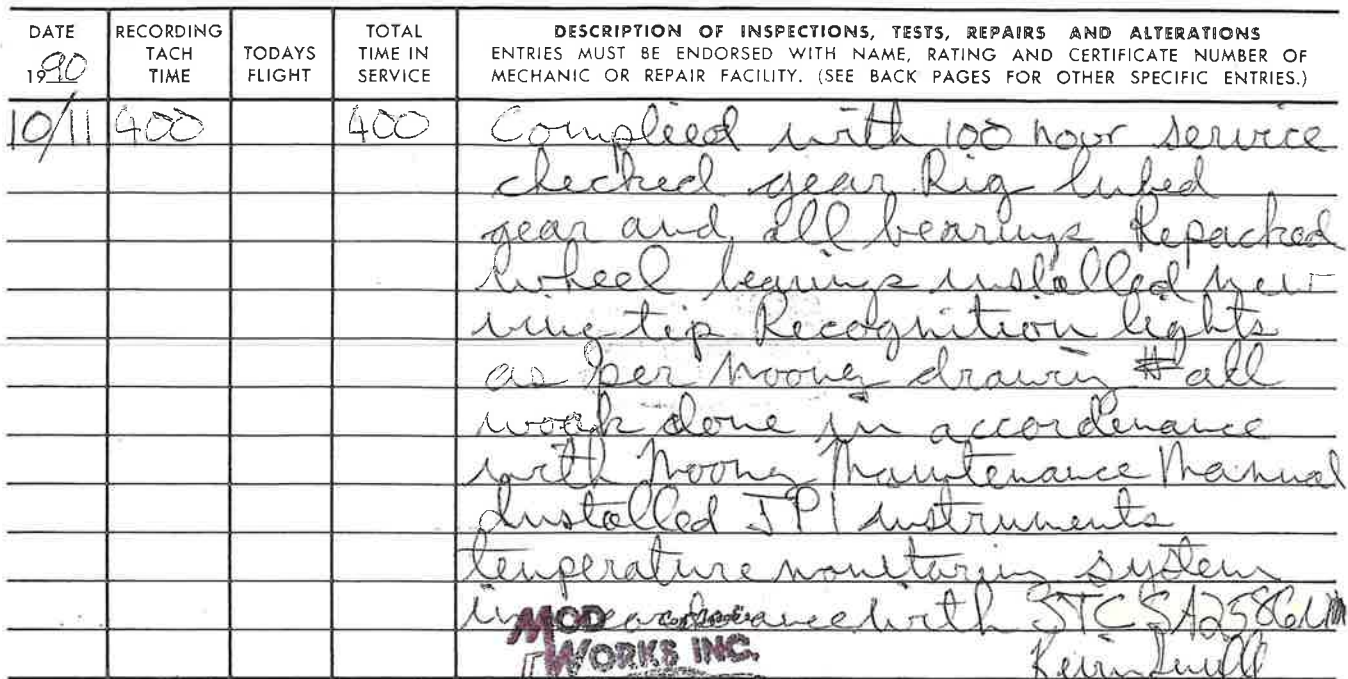 DATE
1990
RECORDING
TACH
TIME
TODAYS
FLIGHT
TOTAL
TIME IN
SERVICE
DESCRIPTION OF INSPECTIONS, TESTS, REPAIRS AND ALTERATIONS
ENTRIES MUST BE ENDORSED WITH NAME, RATING AND CERTIFICATE NUMBER OF
MECHANIC OR REPAIR FACILITY. (SEE BACK PAGES FOR OTHER SPECIFIC ENTRIES.)
10/11 400 400 Complied with 100 hour service
checked gear Rig lubed
gear and all bearings Repacked
wheel bearings installed new
wing tip Recognition lights
as per Mooney drawing # all
work done in accordenance
with Mooney Maintenance Manual
Installed JPI instruments
temperature monitoring system
with STC SA2586NM
MOD
WORKS INC.
Kevin